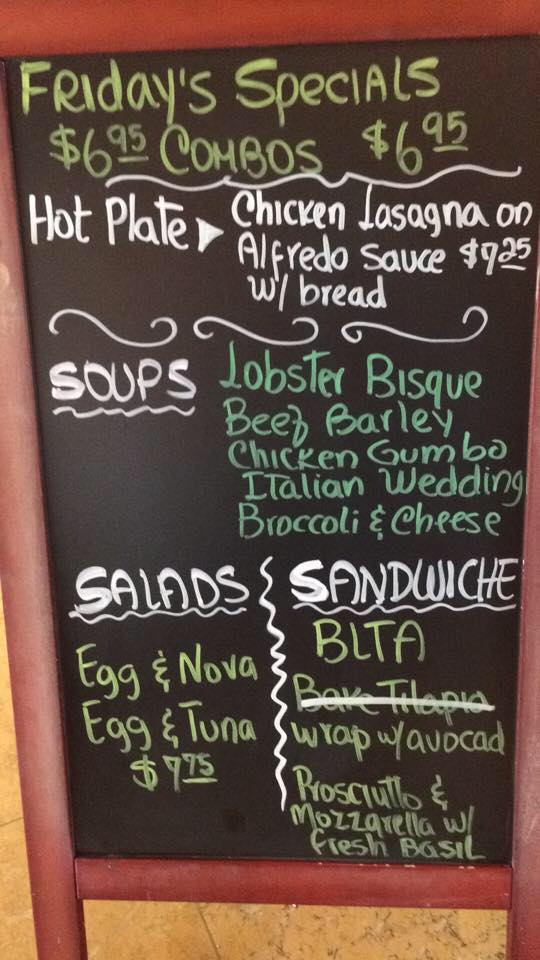 Friday's Specials
$6.95 Combos $6.95
Hot Plate ▸ Chicken Lasagna on
Alfredo Sauce $7.25
w/ bread
SOUPS Lobster Bisque
Beef Barley
Chicken Gumbo
Italian Wedding
Broccoli & Cheese
SALADS
Egg & Nova
Egg & Tuna
$7.75
SANDWICHE
BLTA
Bake Tilapia
wrap w/avocad
Prosciutto &
Mozzarella w/
fresh Basil